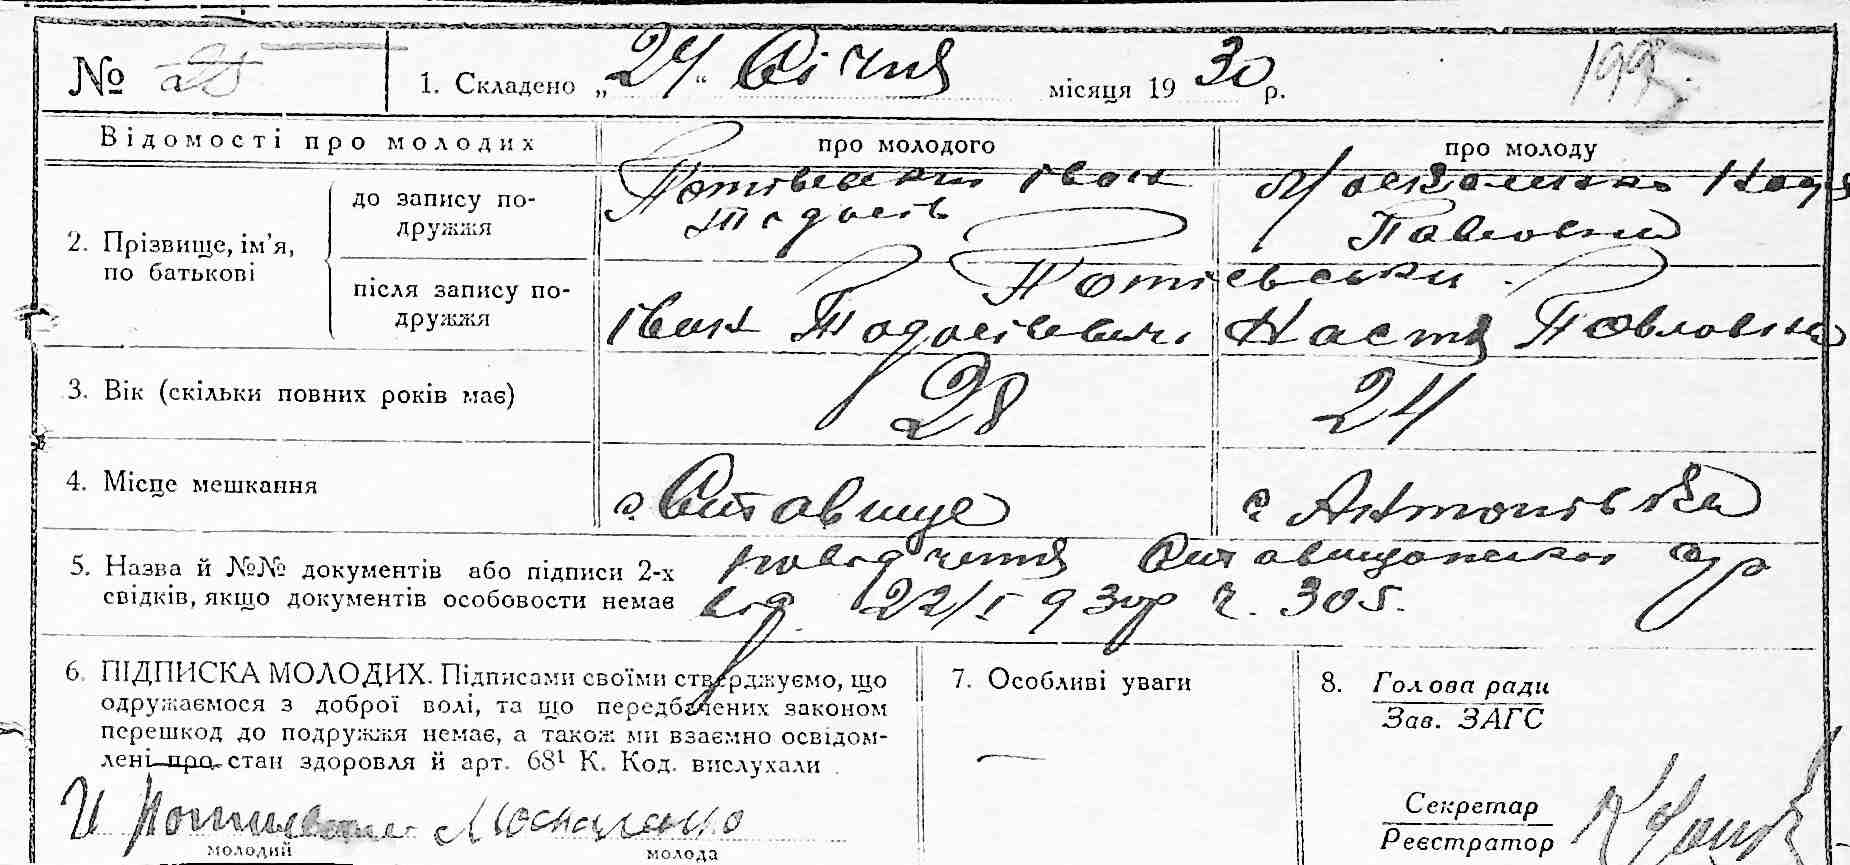 № 25 1. Складено „24“ Січня місяця 1930 р. 1995
Відомості про молодих про молодого про молоду
2. Прізвище, ім’я, по батькові
до запису по-
дружжя
Іван
Москаленко
Павловна
після запису по-
дружжя
Потієвськи
Іван Тодосієвич Настя Павловна
3. Вік (скільки повних років має) 28 24
4. Місце мешкання с. Ставище с. Антонівка
5. Назва й №№ документів або підписи 2-х
свідків, якщо документів особовости немає
Ставищанської
від 22/I 930р ч. 305.
6. ПІДПИСКА МОЛОДИХ. Підписами своїми стверджуємо, що
одружаємося з доброї волі, та що передбачених законом
перешкод до подружжя немає, а також ми взаємно освідом-
лені про стан здоровля й арт. 68¹ К. Код. вислухали
И Москаленко
молодий молода
7. Особливі уваги
—
8. Голова ради
Зав. ЗАГС
Секретар
Реєстратор